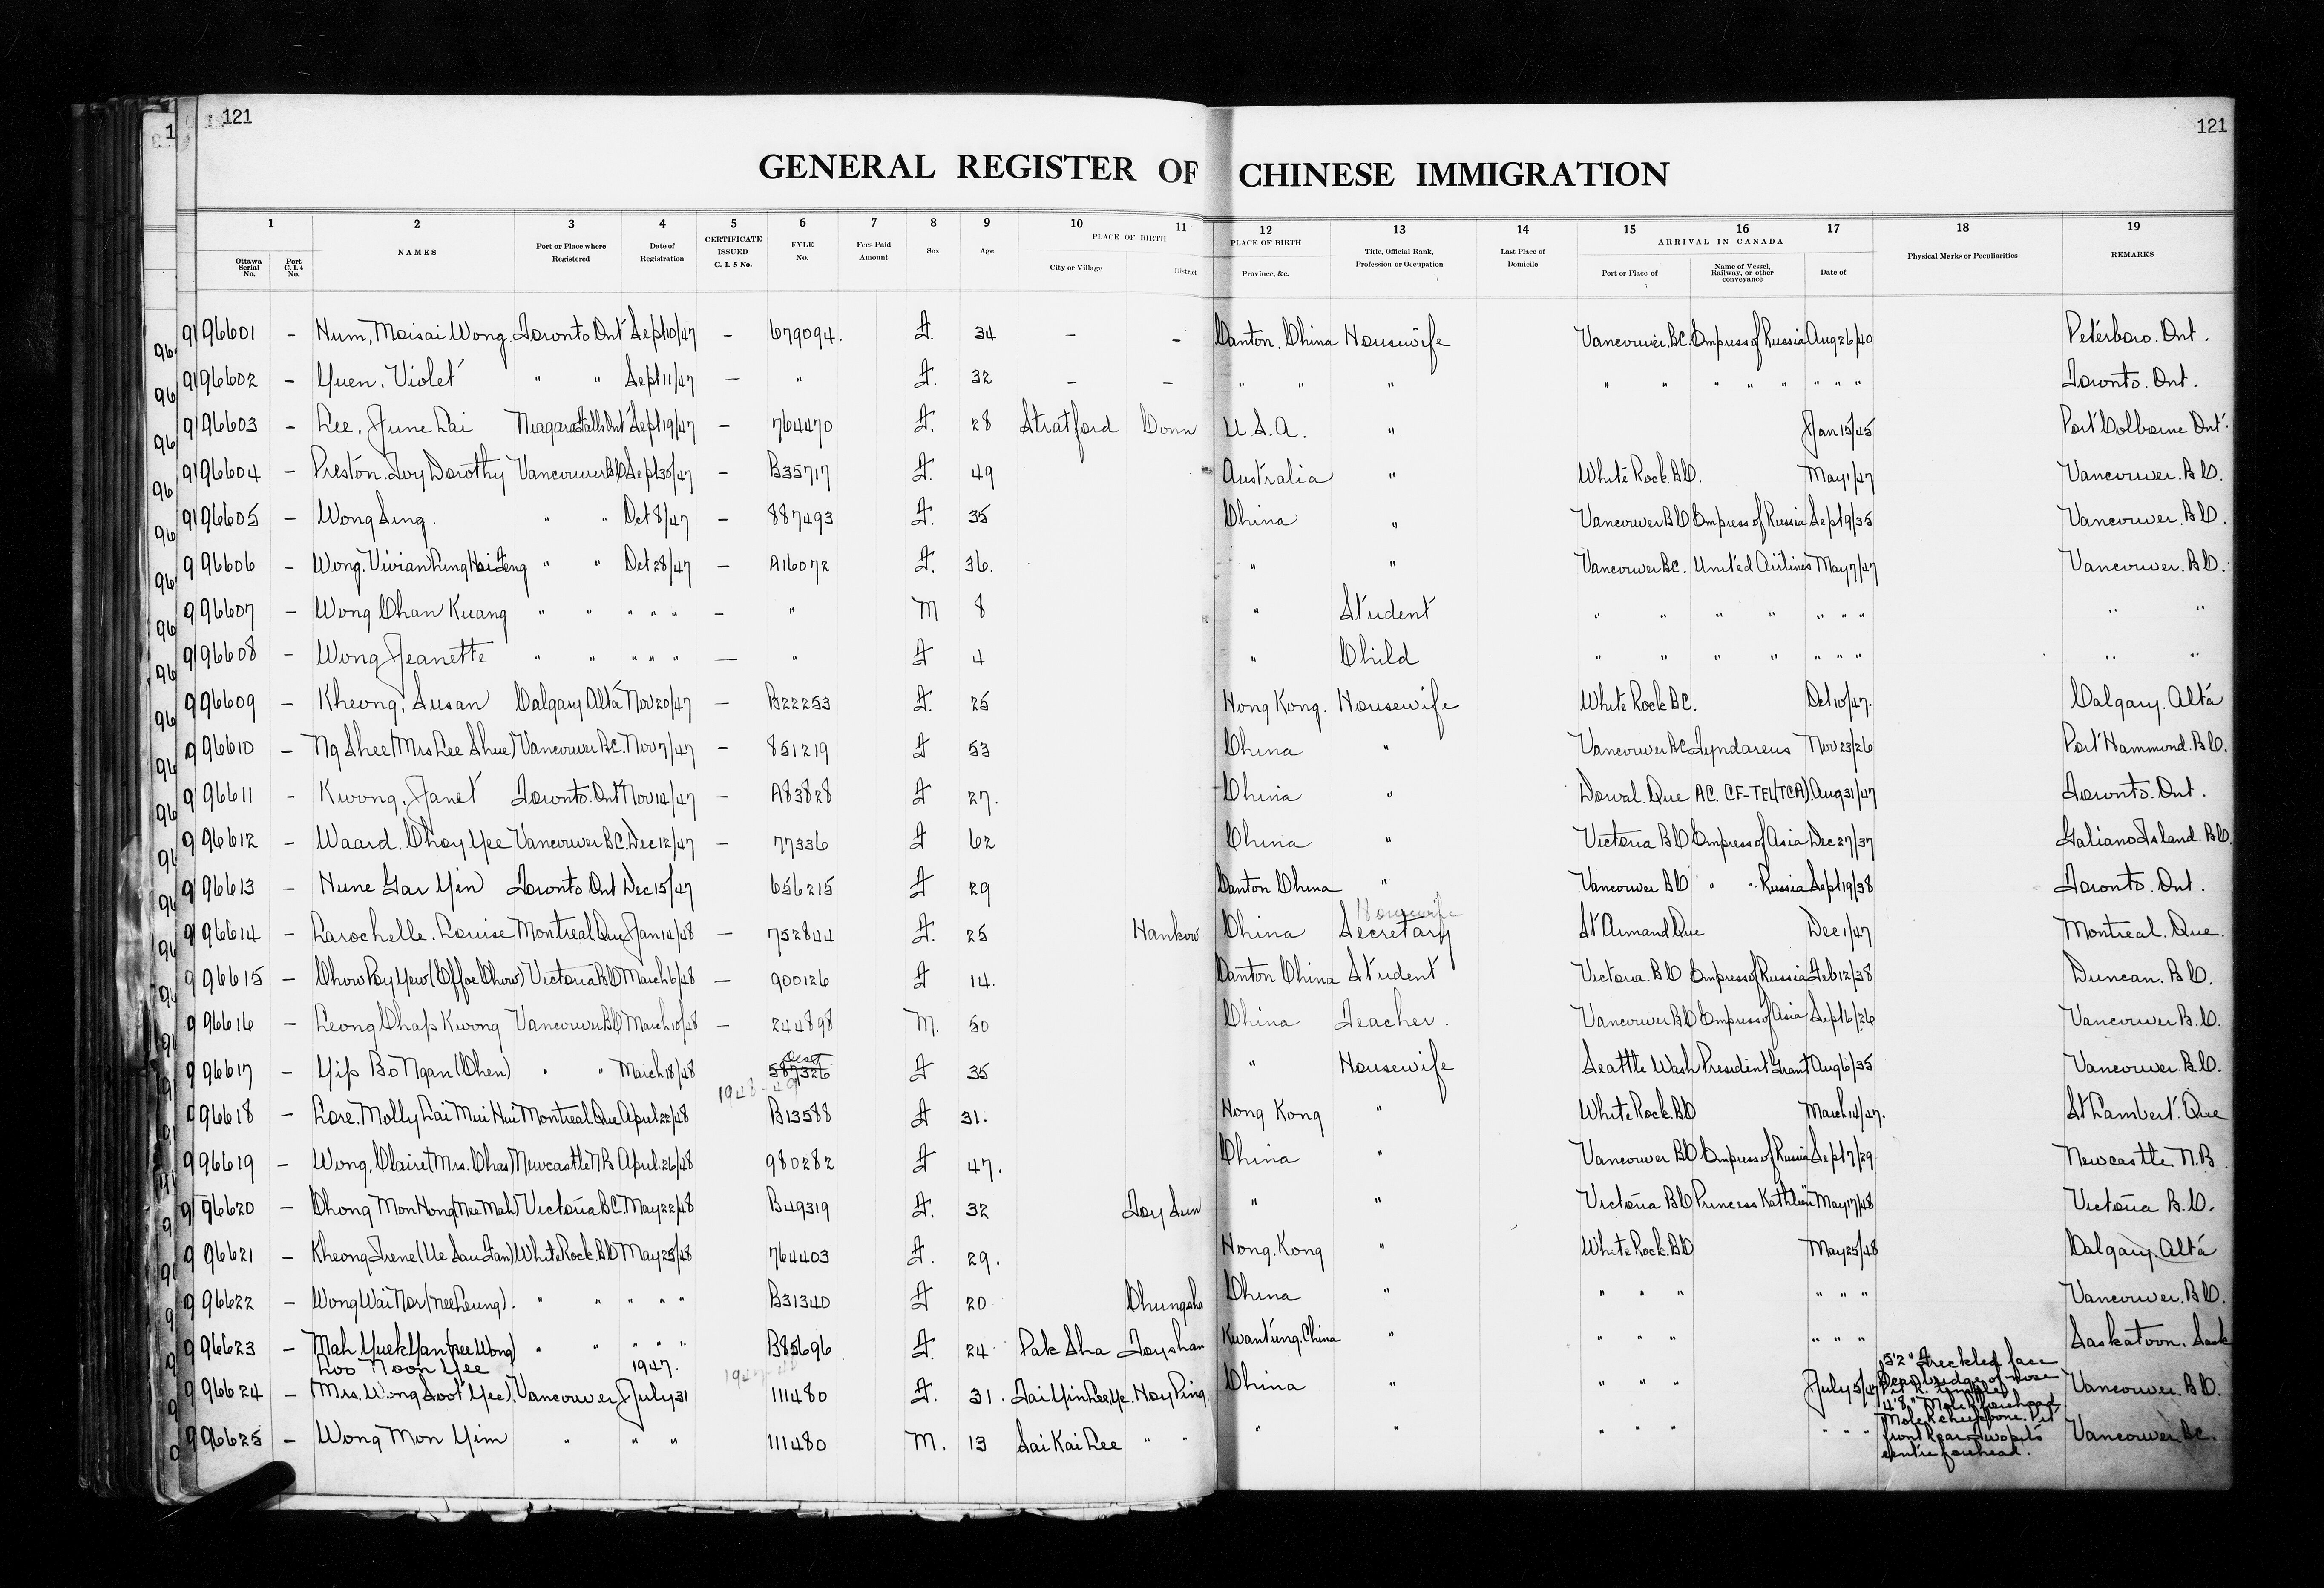 121
121
GENERAL REGISTER OF CHINESE IMMIGRATION
1 2 3 4 5 6 7 8 9 10 11 12 13 14 15 16 17 18 19
Ottawa Serial No. Port C.I.4 No. NAMES Port or Place where Registered Date of Registration CERTIFICATE ISSUED C. I. 5 No. FYLE No. Fees Paid Amount Sex Age PLACE OF BIRTH City or Village District PLACE OF BIRTH Province, &c. Title, Official Rank, Profession or Occupation Last Place of Domicile ARRIVAL IN CANADA Port or Place of Name of Vessel, Railway, or other conveyance Date of Physical Marks or Peculiarities REMARKS
96601 – Hum, Maisai Wong Toronto Ont Sept 10/47 – 679094. F. 34 – – Canton, China Housewife Vancouver. B.C. Empress of Russia Aug 26/40 Peterboro. Ont.
96602 – Yuen, Violet " " Sept 11/47 – " F. 32 – – " " " " " " " " " " " Toronto. Ont.
96603 – Lee, June Lai Niagara Falls Ont Sept 19/47 – 764470 F. 28 Stratford Conn U.S.A. " Jan 15/45 Port Colborne Ont.
96604 – Preston. Ivy Dorothy Vancouver B.C. Sept 30/47 – B35717 F. 49 Australia " White Rock. B.C. May 1/47 Vancouver. B.C.
96605 – Wong Sing. " " Oct 8/47 – 887493 F. 35 China " Vancouver B.C. Empress of Russia Sept 9/35 Vancouver. B.C.
96606 – Wong, Vivian " " Oct 28/47 – A16072 F. 36. " " Vancouver B.C. United Airlines May 7/47 Vancouver. B.C.
96607 – Wong Chan Kuang " " " " " – " M 8 " Student " " " " " " " " "
96608 – Wong Jeanette " " " " " – " F 4 " Child " " " " " " " " "
96609 – Kheong, Susan Calgary Alta Nov 20/47 – B22253 F. 25 Hong Kong. Housewife White Rock B.C. Oct 10/47. Calgary. Alta
96610 – Ng Shee (Mrs Lee Shue) Vancouver B.C. Nov 7/47 – 851219 F 53 China " Vancouver B.C. Tyndareus Nov 23/26 Port Hammond. B.C.
96611 – Kwong, Janet Toronto. Ont Nov 14/47 – A83828 F 27. China " Dorval. Que AC. CF-TEL (TCA). Aug 31/47 Toronto. Ont.
96612 – Waard. Choy Yee Vancouver B.C. Dec 12/47 – 77336 F 62 China " Victoria B.C. Empress of Asia Dec 27/37 Galiano Island. B.C.
96613 – Hune Gar Yin Toronto Ont Dec 15/47 656215 F 29 Canton China " Vancouver B.C. " " Russia Sept 19/38 Toronto. Ont.
Housewife
96614 – Larochelle. Louise Montreal Que Jan 14/48 – 752844 F. 25 Hankow China Secretary St Armand Que Dec 1/47 Montreal. Que.
96615 – Chow Poy Yew (Effie Chow) Victoria B.C. March 6/48 – 900126 F 14. Canton China Student Victoria. B.C. Empress of Russia Feb 12/38 Duncan. B.C.
96616 – Leong Chap Kwong Vancouver B.C. March 10/48 – 244898 M. 50 China Teacher. Vancouver B.C. Empress of Asia Sept 6/26 Vancouver B.C.
96617 – Yip Bo Ngan (Chen) " " March 18/48 587326 F 35 " Housewife Seattle Wash President Grant Aug 6/35 Vancouver. B.C.
1948-49
96618 – Lore. Molly Lai Mui Hui Montreal. Que April 22/48 B13588 F 31. Hong Kong " White Rock. B.C. March 14/47. St Lambert. Que
96619 – Wong, Claire (Mrs. Chas) Newcastle N.B. April. 26/48 980282 F 47. China " Vancouver B.C. Empress of Russia Sept 7/29 Newcastle N.B.
96620 – Chong Mon Hong (Nee Mah) Victoria B.C. May 22/48 B49319 F. 32 Toy Sun " " Victoria B.C. Princess Kathleen May 17/48 Victoria B.C.
96621 – Kheong Irene (Ue Sau Fan) White Rock. B.C. May 25/48 764403 F. 29. Hong. Kong " White Rock. B.C. May 25/48 Calgary. Alta
96622 – Wong Wai Nor (nee Leung). " " " " " B31340 F 20 Chungsha China " " " " " " " Vancouver. B.C.
96623 – Mah Yuek Yan (nee Wong) " " " " " B85696 F. 24 Pak Sha Toyshan Kwantung. China " " " " " " " Saskatoon. Sask
Loo Noon Yee 1947.
96624 – (Mrs. Wong Soot Yee). Vancouver July 31 111480 F. 31. Hoy Ping China " " " " July 5/47 Vancouver. B.C.
5'2" Freckled face
Deep bridge of nose
Pit R. temple
96625 – Wong Mon Yim " " " 111480 M. 13 Sai Kai Lee " " " " " " " " " " Vancouver B.C.
4'8" Mole R forehead
Mole R cheekbone. Pit
front R ear. Two pits
centre forehead.